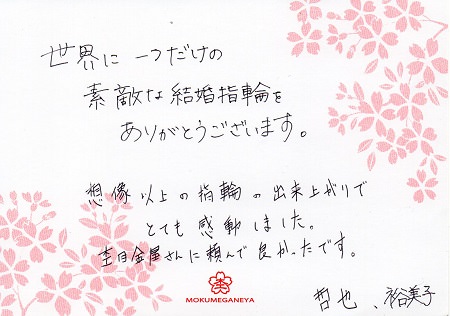 世界に一つだけの
素敵な結婚指輪を
ありがとうございます。
想像以上の指輪の出来上がりで
とても感動しました。
杢目金屋さんに頼んで良かったです。
杢
MOKUMEGANEYA
哲也、裕美子